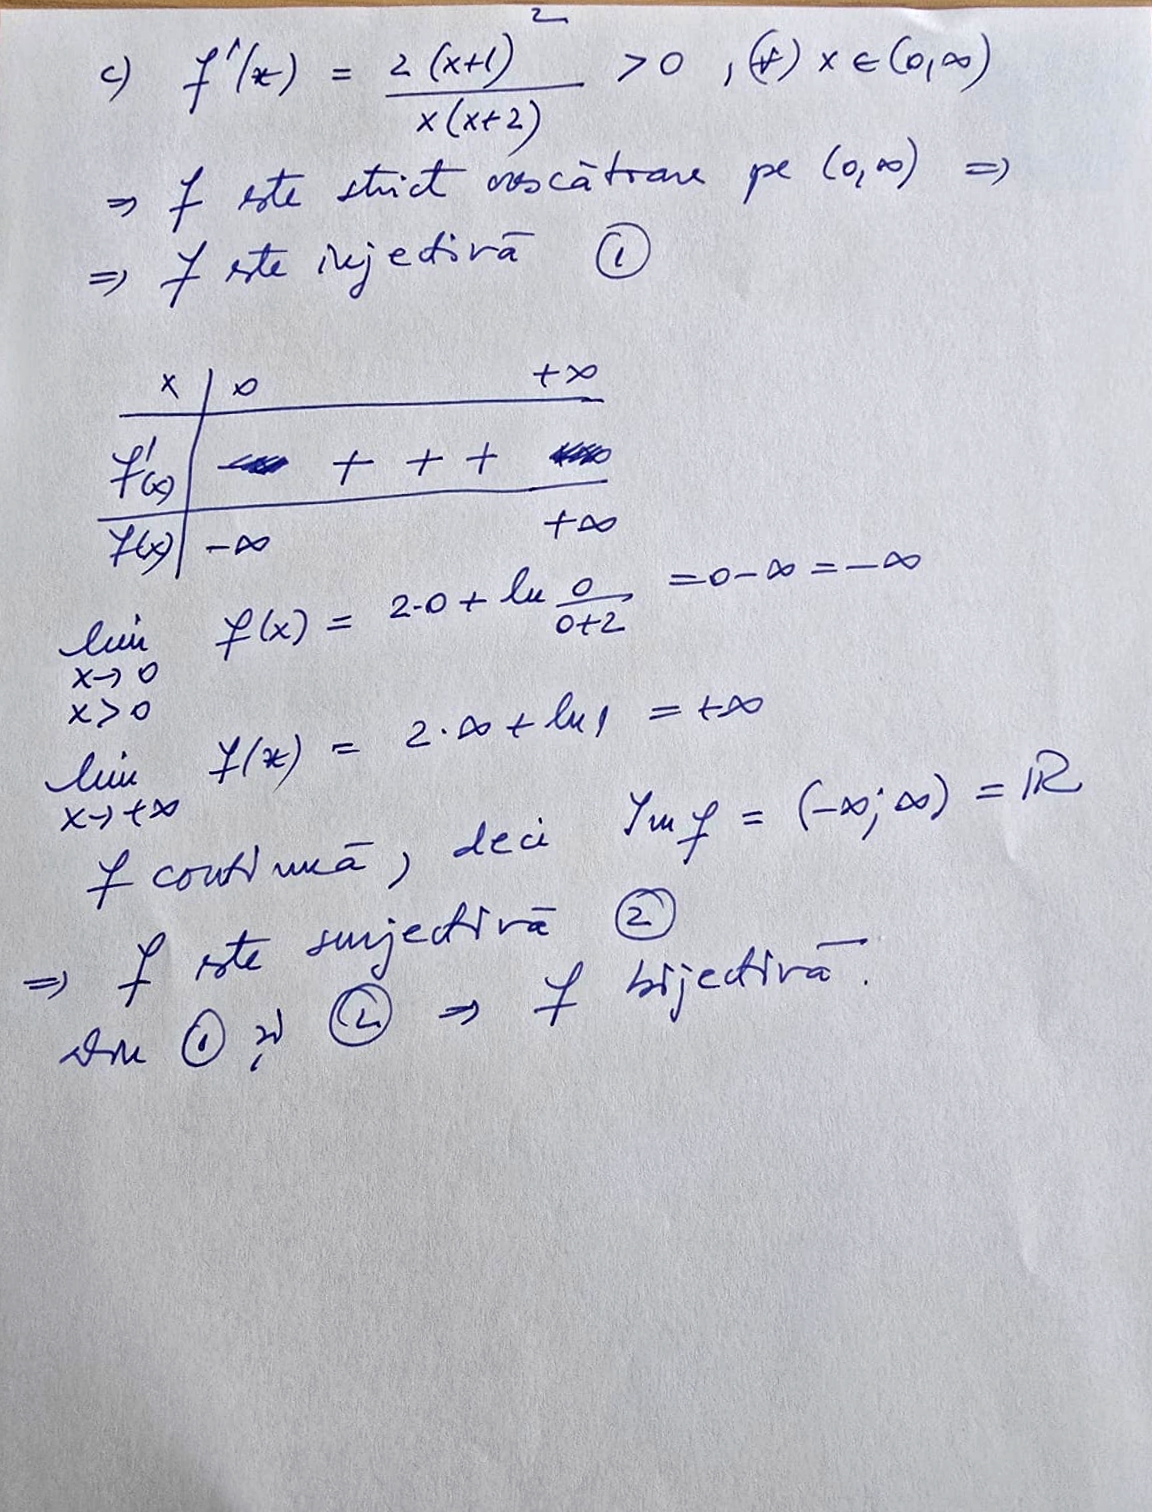 c) f'(x) = 2(x+1)² / x(x+2) > 0 , (∀) x ∈ (0,∞)
⇒ f este strict crescătoare pe (0,∞) ⇒
⇒ f este injectivă ①
x | 0 +∞
f'(x) | + + +
f(x) | -∞ +∞
lim x→0 x>0 f(x) = 2·0 + ln 0/0+2 = 0-∞ = -∞
lim x→+∞ f(x) = 2·∞ + ln 1 = +∞
f continuă, deci Im f = (-∞; ∞) = ℝ
⇒ f este surjectivă ②
Din ① și ② ⇒ f bijectivă.